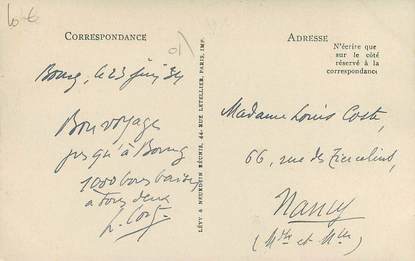 CORRESPONDANCE
Bourg, le 23 juin 34
Bon voyage
jusqu'à Bourg
1000 bons baisers
à tous deux
L. Coste
LÉVY & NEURDEIN RÉUNIS, 44, RUE LETELLIER, PARIS, IMP.
ADRESSE
N'écrire que
sur le côté
réservé à la
correspondance
Madame Louis Coste,
66, rue des Tiercelins,
Nancy
(Mthe et Mlle)